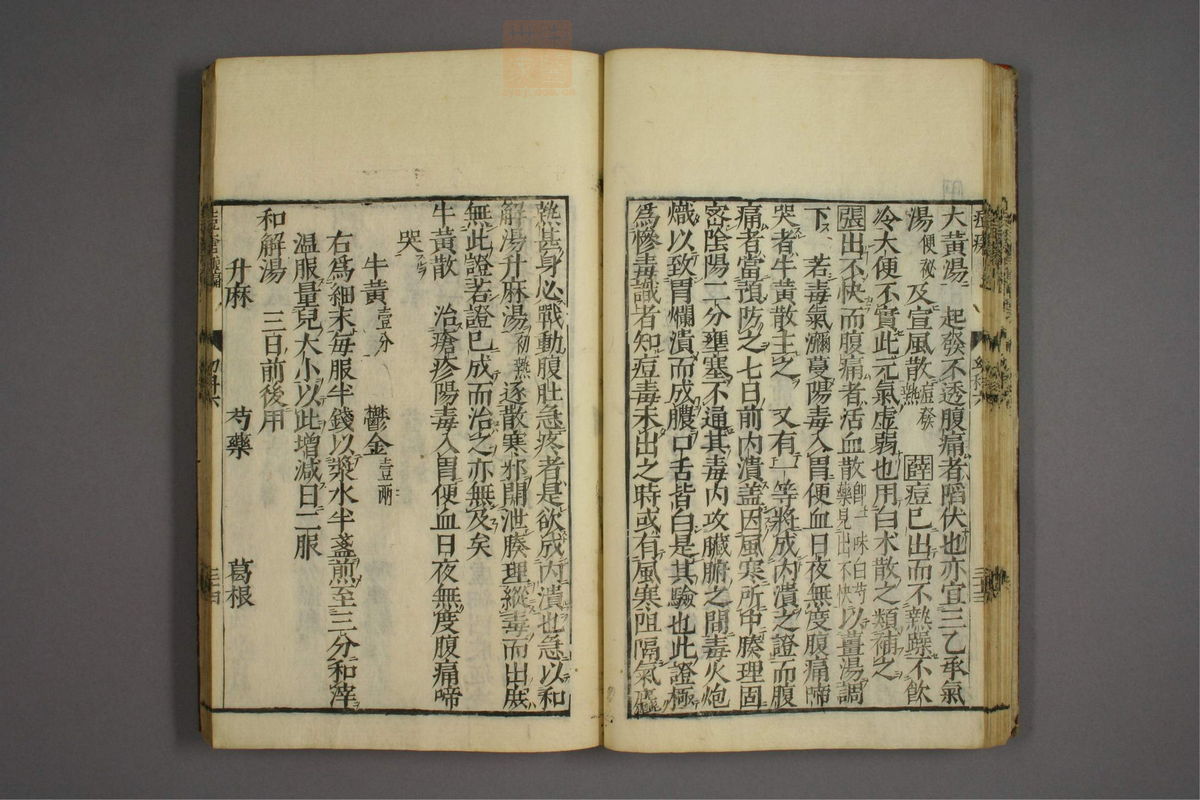 大黃湯 起發不透腹痛者陷伏也亦宜三乙承氣
湯便祕及宣風散痘發熱 薛痘已出而不熱躁不飲
冷大便不實此元氣虛弱也用白朮散之類補之
張出不快而腹痛者活血散即一味白芍藥見出不快以薑湯調
下 若毒氣瀰蔓陽毒入胃便血日夜無度腹痛啼
哭者牛黃散主之 又有一等將成內潰之證而腹
痛者當預防之七日前內潰盖因風寒所中腠理固
密陰陽二分壅塞不通其毒內攻臟腑之間毒火炮
熾以致胃爛潰而成膿口舌皆白是其驗也此證極
爲慘毒識者知痘毒未出之時或有風寒阻隔氣
熱甚身必戰動腹肚急疼者是欲成內潰也急以和
解湯升麻湯初熱逐散寒邪開泄腠理縱毒而出庶
無此證若證已成而治之亦無及矣
牛黃散 治瘡疹陽毒入胃便血日夜無度腹痛啼
哭
牛黃壹分 鬱金壹兩
右爲細末每服半錢以漿水半盞煎至三分和滓
溫服量兒大小以此增減日二服
和解湯 三日前後用
升麻 芍藥 葛根